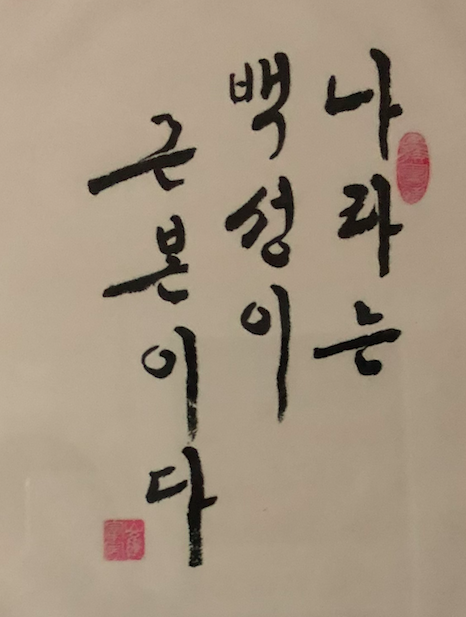 나라는
백성이
근본이다